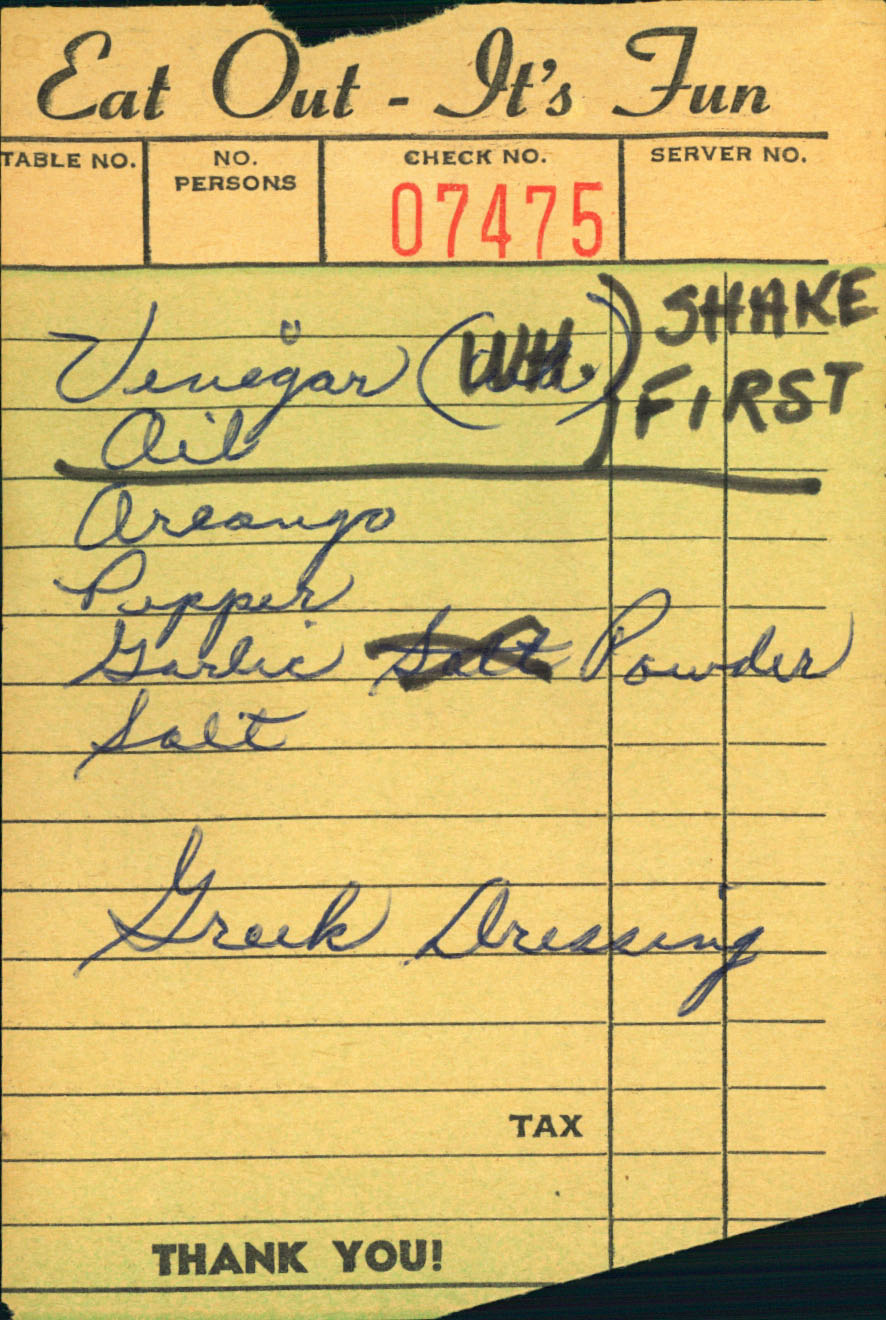 Eat Out - It's Fun
TABLE NO. NO. PERSONS CHECK NO. SERVER NO.
07475
Venegar (WH.) SHAKE
Oil FIRST
Oreango
Pepper
Garlic Salt Powder
Salt
Greek Dressing
TAX
THANK YOU!